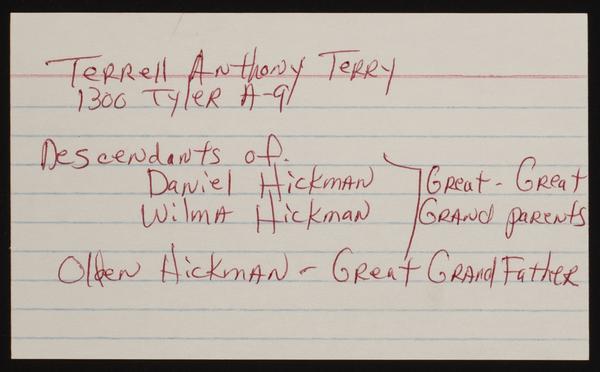 Terrell Anthony Terry
1300 Tyler A-9
Descendants of.
Daniel Hickman
Wilma Hickman
Great-Great
Grand parents
Olden Hickman - Great Grand Father